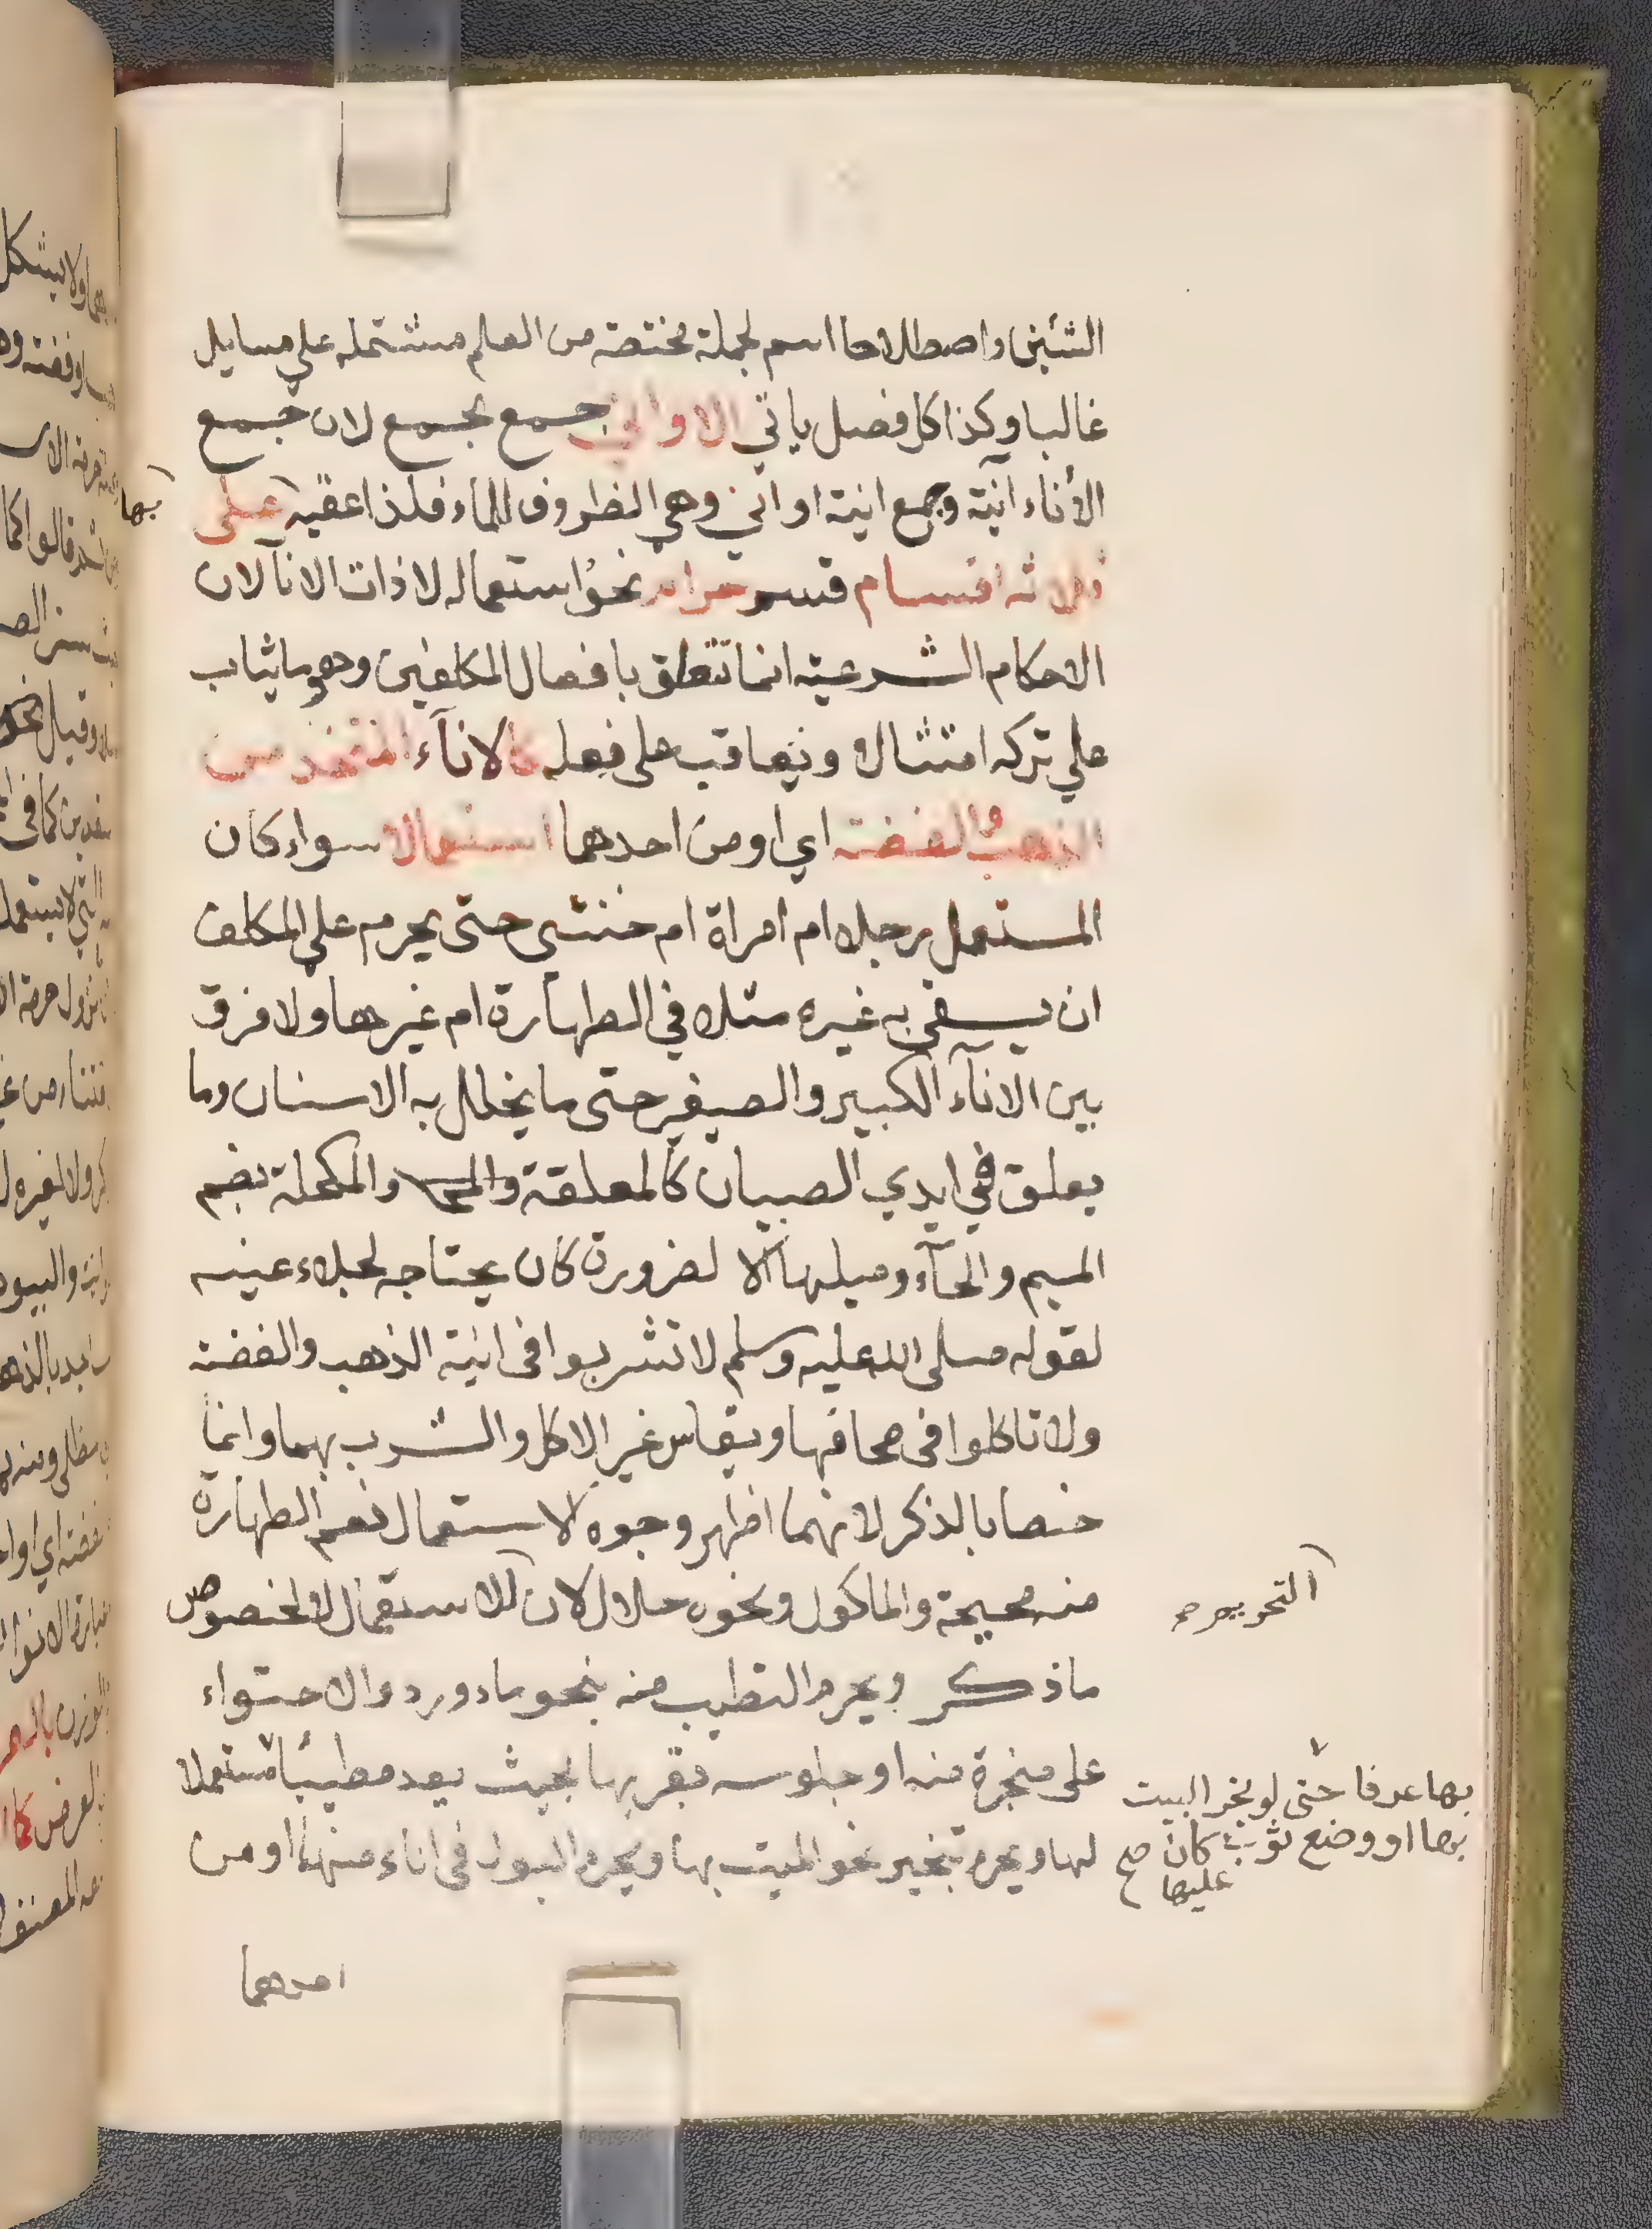 الشئين واصطلاحا اسم لجملة مختصة من العلم مشتملة علي مسايل
غالبا وكذا كل فصل ياتي الاواني جمع بجمع لان جمع
الأناء آنية وجمع انية اواني وهي الظروف للماء فلذا عقبه بها علي
ثلاثة اقسام قسم حرام نحو استعماله لا ذات الانآ لان
الاحكام الشرعية انما تتعلق بافعال المكلفين وهو ما يثاب
علي تركه امتثالا ويعاقب على فعله كالانآء المتخذ من
الذهب والفضة اي او من احدهما استعمالا سواء كان
المستعمل رجلا ام امراة ام خنثى حتى يحرم علي المكلف
ان يسقي به غيره مثلا في الطهارة ام غيرها ولا فرق
بين الانآء الكبير والصغير حتى ما يخلل به الاسنان وما
يعلق في ايدي الصبيان كالمعلقة والمكحلة بضم
الميم والحآء وميلها الا لضرورة كان يحتاجه لجلاء عينه
لقوله صلى الله عليه وسلم لا تشربوا في انية الذهب والفضة
ولا تاكلوا في صحافها ويقاس غير الاكل والشرب بهما وانما
خصا بالذكر لانهما اظهر وجوه الاستعمال نعم الطهارة
منه صحيحة والماكول ونحوه حلال لان التحريم صح للاستعمال لا لخصوص
ما ذكر ويحرم التطيب منه بنحو ماء ورد والاحتواء
على مبخرة منه او جلوسه بقربها بحيث يعد مطيبا مستعملا
بها عرفا حتى لو بخر البيت
بها او وضع ثوب كان صح
عليها
لها ويحرم تبخير نحو الميت بها ويحرم البول في اناء منهما او من
احدهما